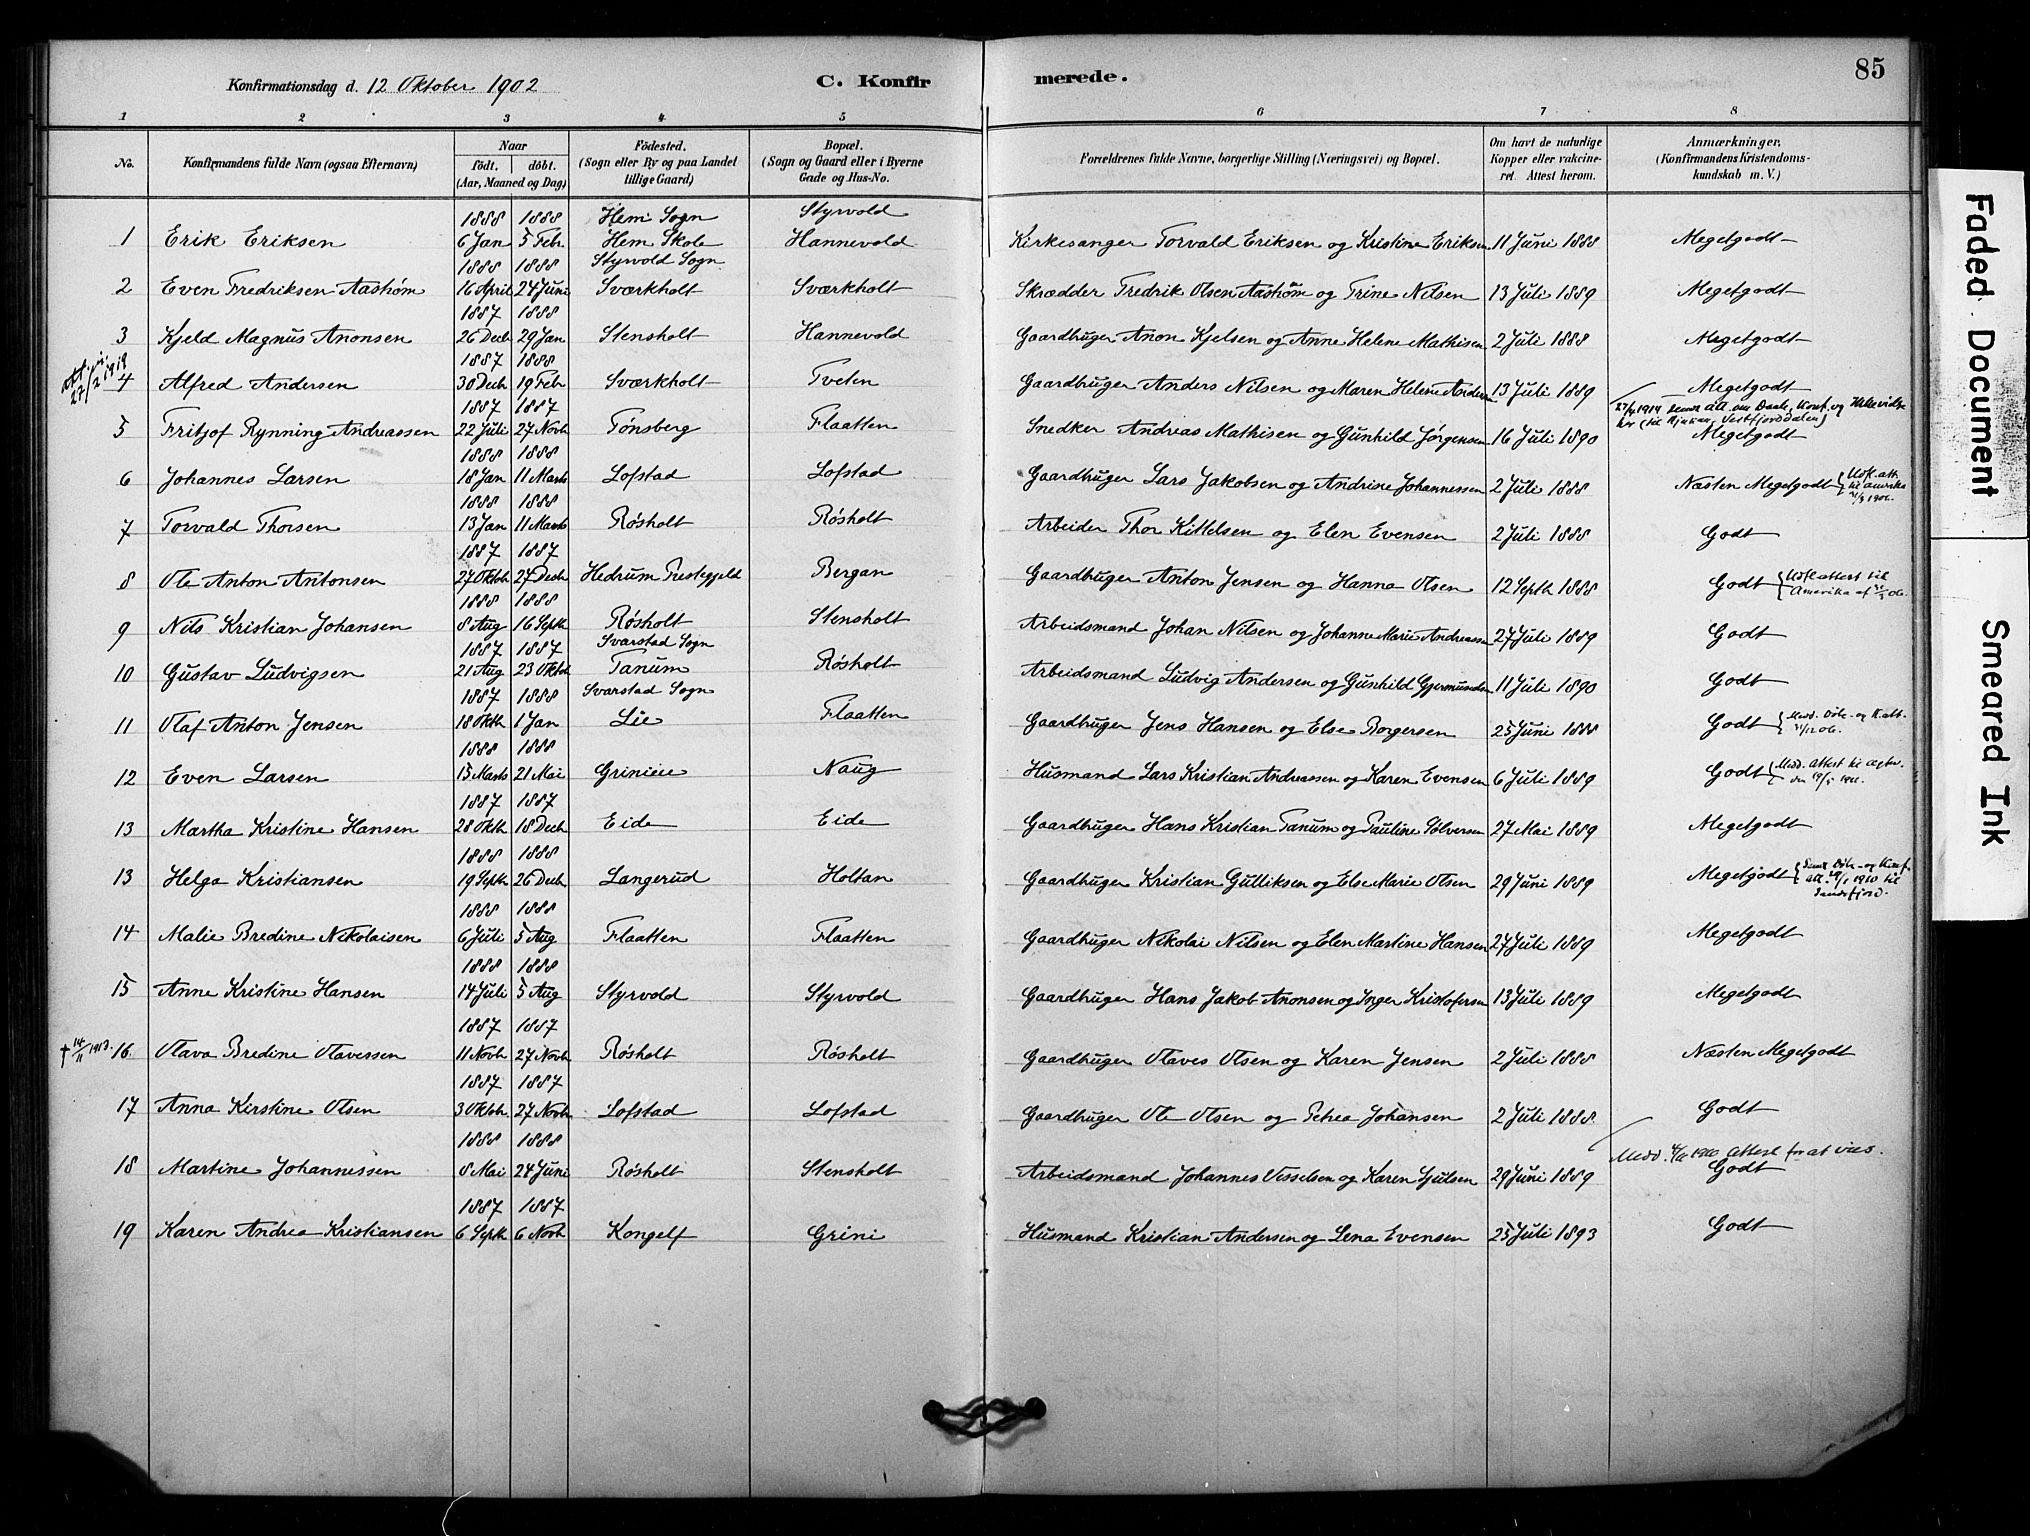 Konfirmationsdag d. 12 Oktober 1902
C. Konfirmerede.
85
1 2 3 4 5 6 7 8
No.
Konfirmandens fulde Navn (ogsaa Efternavn)
Naar
födt. döbt.
(Aar, Maaned og Dag)
Födested.
(Sogn eller By og paa Landet
tillige Gaard)
Bopæl.
(Sogn og Gaard eller i Byerne
Gade og Hus-No.
Forældrenes fulde Navne, borgerlige Stilling (Næringsvei) og Bopæl.
Om havt de naturlige
Kopper eller vakcine-
ret. Attest herom.
Anmærkninger.
(Konfirmandens Kristendoms-
kundskab m. V.)
1888 1888 Hem Sogn Styrvold
1 Erik Eriksen 6 Jan 5 Feb. Hem Skole Hannevold Kirkesanger Torvald Eriksen og Kristine Eriksen 11 Juni 1888 Megetgodt
1888 1888 Styrvold Sogn
2 Even Fredriksen Aashøm 16 April 24 Juni Sværkholt Sværkholt Skrædder Fredrik Olsen Aashøm og Trine Nilsen 13 Juli 1889 Megetgodt
1887 1888
3 Kjeld Magnus Anonsen 26 Decb 29 Jan Stensholt Hannevold Gaardbruger Anon Kjelsen og Anne Helene Mathisen 2 Juli 1888 Megetgodt
27/2 1919
1887 1888
4 Alfred Andersen 30 Decb 19 Feb Sværkholt Tveten Gaardbruger Anders Nilsen og Maren Helene Andersen 13 Juli 1889 Megetgodt
1887 1887
5 Fritjof Rynning Andreassen 22 Juli 27 Novb Tønsberg Flaatten Snedker Andreas Mathisen og Gunhild Jørgensen 16 Juli 1890 Megetgodt
1888 1888
6 Johannes Larsen 18 Jan 11 Marts Lofstad Lofstad Gaardbruger Lars Jakobsen og Andrine Johannessen 2 Juli 1888 Næsten Megetgodt
Udfl. att.
til Amerika
1888 1888
7 Torvald Thorsen 13 Jan 11 Marts Røsholt Røsholt Arbeider Thor Kittelsen og Elen Evensen 2 Juli 1888 Godt
1887 1887
8 Ole Anton Antonsen 27 Oktob 27 Decb Hedrum Prestegjeld Bergan Gaardbruger Anton Jensen og Hanna Olsen 12 Septb 1888 Godt
Udfl. attest til
Amerika
1888 1888
9 Nils Kristian Johansen 8 Aug 16 Septb Røsholt Stensholt Arbeidsmand Johan Nilsen og Johanne Marie Andreassen 27 Juli 1889 Godt
1887 1887 Svarstad Sogn
10 Gustav Ludvigsen 21 Aug 23 Oktob Tanum Røsholt Arbeidsmand Ludvig Andersen og Gunhild Gjermundsen 11 Juli 1890 Godt
1887 1888 Svarstad Sogn
11 Olaf Anton Jensen 18 Oktb 1 Jan Lie Flaatten Gaardbruger Jens Hansen og Else Borgersen 25 Juni 1888 Godt
1888 1888
12 Even Larsen 15 Marts 21 Mai Naug Husmand Lars Kristian Andreassen og Karen Evensen 6 Juli 1889 Godt
1887 1887
13 Martha Kristine Hansen 28 Oktb 18 Decb Eide Eide Gaardbruger Hans Kristian Tanum og Pauline Sølversen 27 Mai 1889 Megetgodt
1888 1888
13 Helga Kristiansen 19 Septb 26 Decb Langerud Holtan Gaardbruger Kristian Gulliksen og Else Marie Olsen 29 Juni 1889 Megetgodt
1910 til
Sandefjord.
1888 1888
14 Malie Bredine Nikolaisen 6 Juli 5 Aug Flaatten Flaatten Gaardbruger Nikolai Nilsen og Elen Martine Hansen 24 Juli 1889 Megetgodt
1888 1888
15 Anne Kristine Hansen 14 Juli 5 Aug Styrvold Styrvold Gaardbruger Hans Jakob Anonsen og Inger Kristofersen 13 Juli 1889 Megetgodt
1887 1887
† 14/11 1913. 16. Olava Bredine Olavessen 11 Novb 27 Novb Røsholt Røsholt Gaardbruger Olaves Olsen og Karen Jensen 2 Juli 1888 Næsten Megetgodt
1887 1887
17 Anna Kirstine Olsen 3 Oktob. 27 Novb Lofstad Lofstad Gaardbruger Ole Olsen og Petrea Johansen 2 Juli 1888. Godt
1888 1888
18 Martine Johannessen 8 Mai 24 Juni Røsholt Stensholt Arbeidsmand Johannes Visselsen og Karen Sjulsen 29 Juni 1889 Godt
1887 1887
19 Karen Andrea Kristiansen 6 Septb 6 Novb Kongelf Grini Husmand Kristian Andersen og Lena Evensen 25 Juli 1893 Godt
Faded Document
Smeared Ink